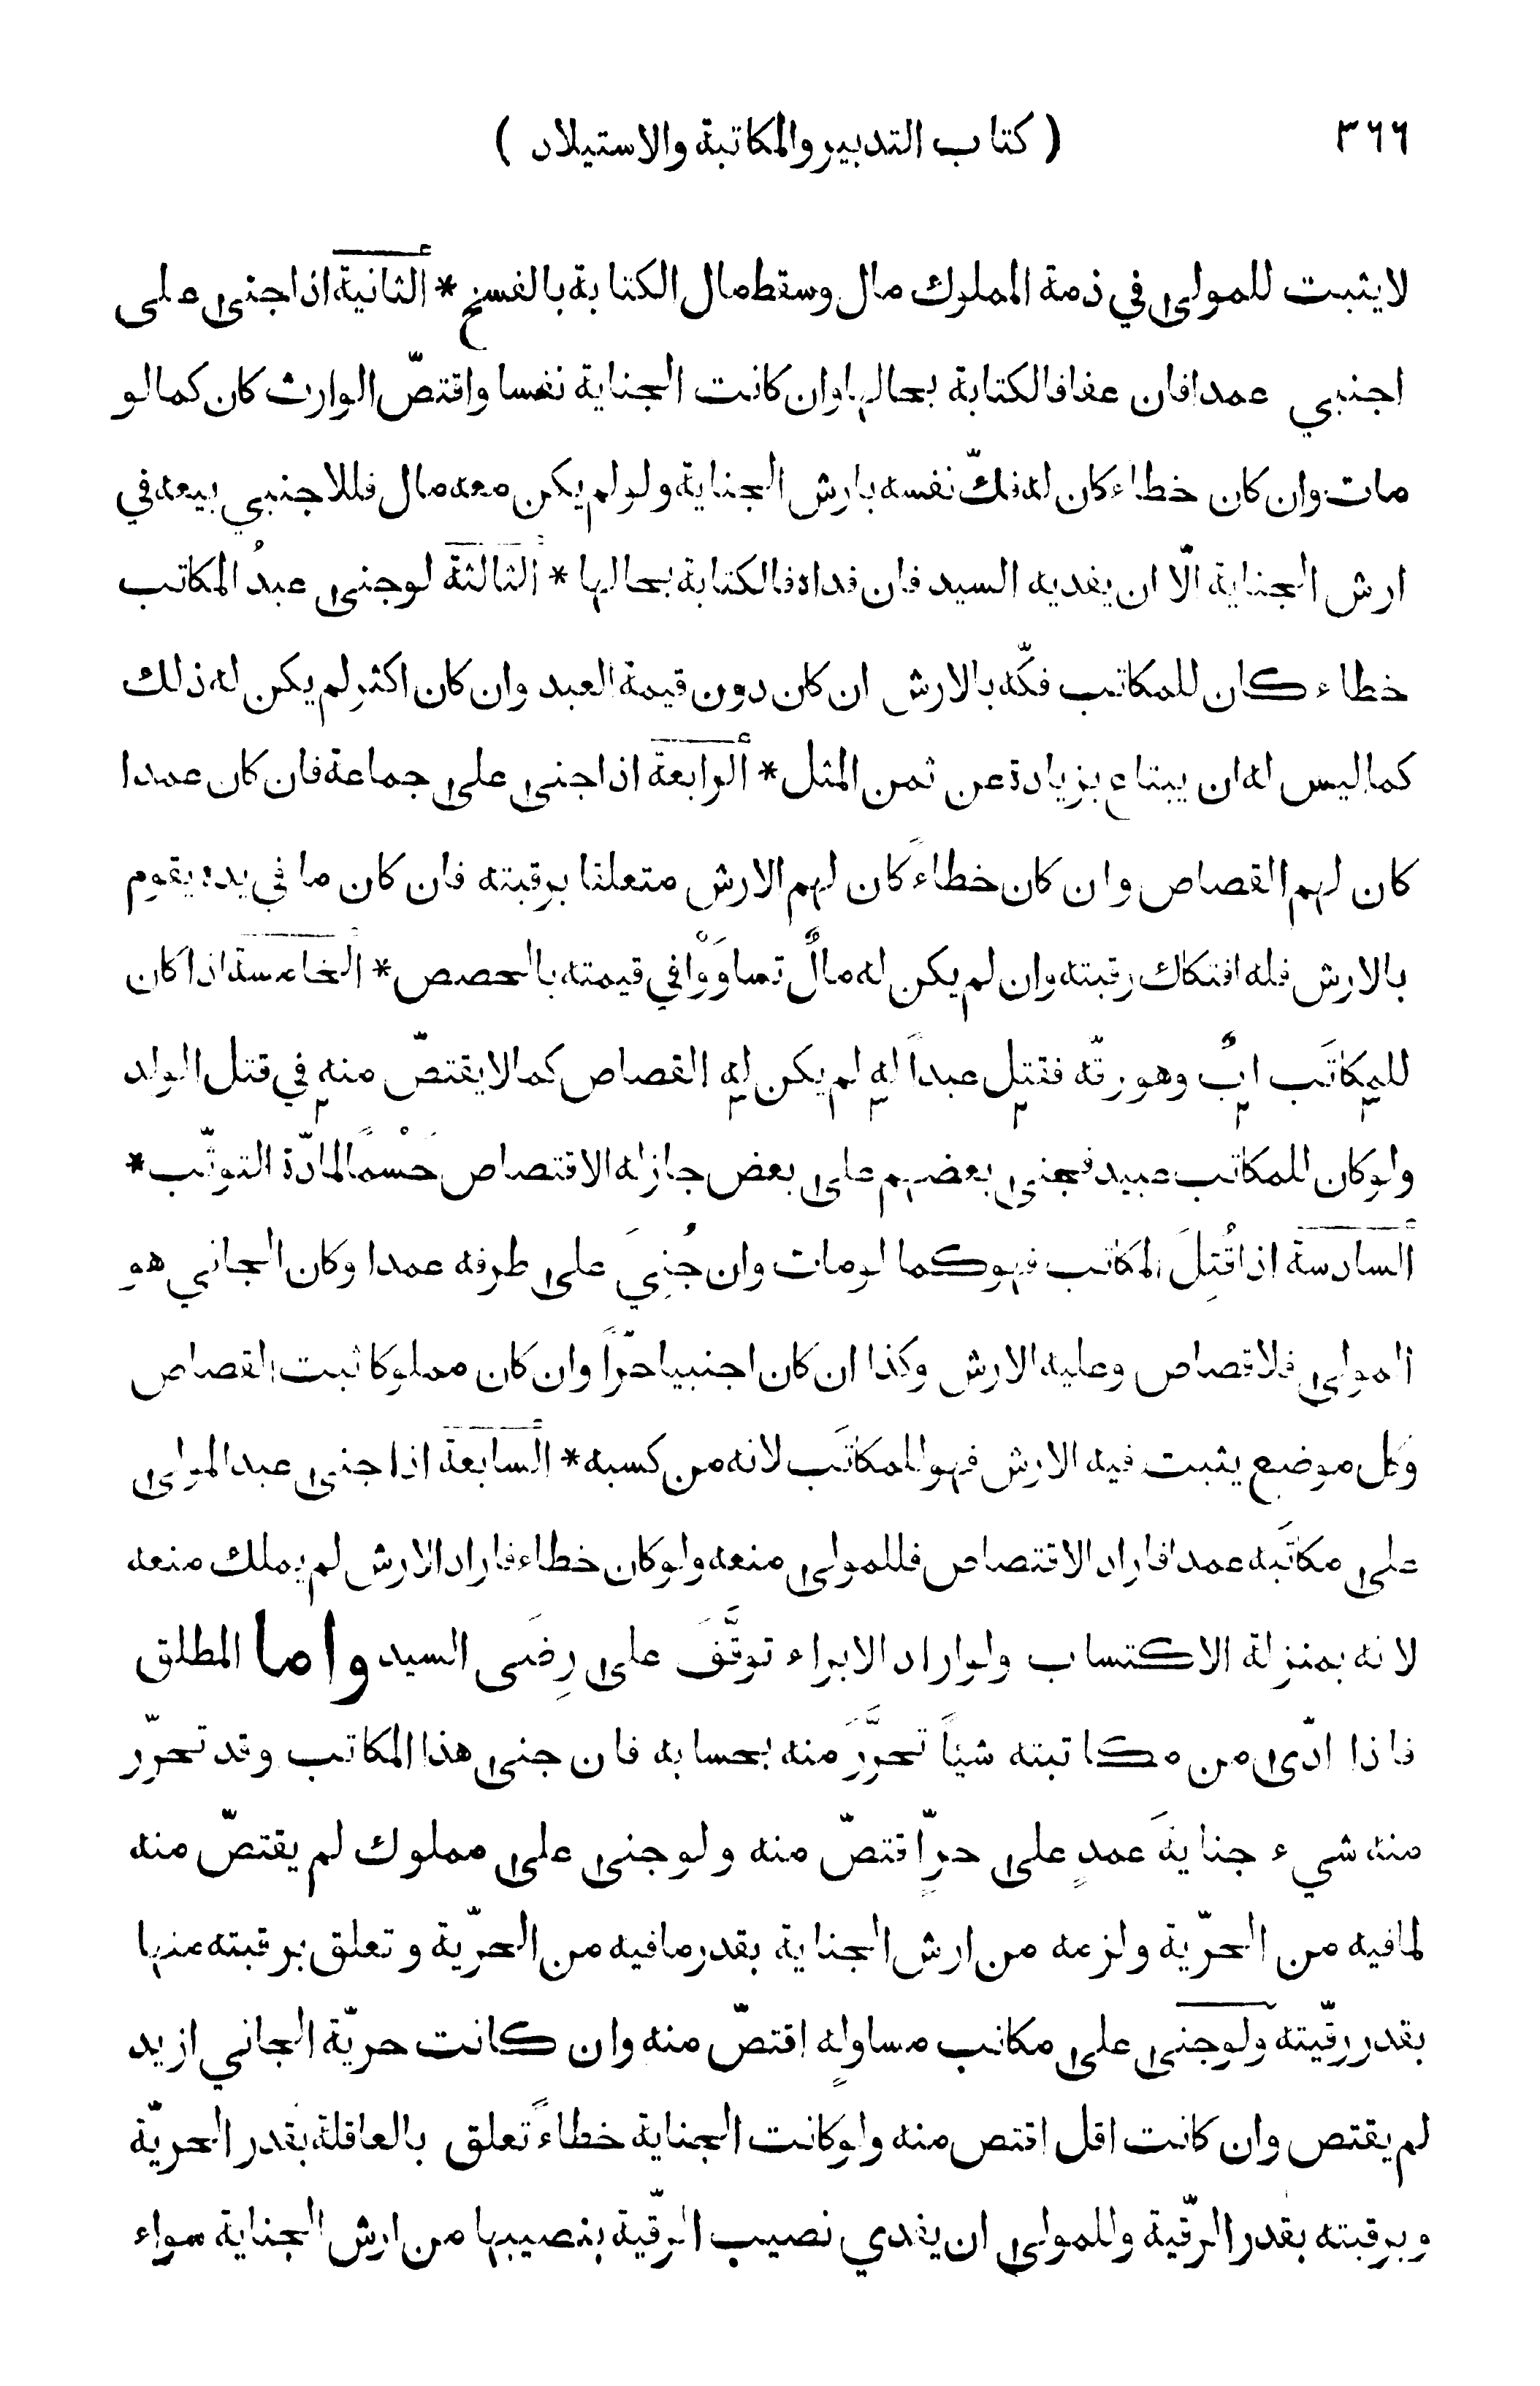 ٣٦٦ ( كتاب التدبير والمكاتبة والاستيلاد )
لا يثبت للمولى في ذمة المملوك مال وسقط مال الكتابة بالفسخ * الثانية اذا جنى على
اجنبي عمدا فان عفا فالكتابة بحالها وان كانت الجناية نفسا واقتصّ الوارث كان كما لو
مات وان كان خطاء كان له فكّ نفسه بارش الجناية ولو لم يكن معه مال فللاجنبي بيعه في
ارش الجناية الّا ان يفديه السيد فان فداه فالكتابة بحالها * الثالثة لو جنى عبدُ المكاتب
خطاء كان للمكاتب فكّه بالارش ان كان دون قيمة العبد وان كان اكثر لم يكن له ذلك
كما ليس له ان يبتاع بزيادة عن ثمن المثل * الرابعة اذا جنى على جماعة فان كان عمدا
كان لهم القصاص وان كان خطاءً كان لهم الارش متعلقا برقبته فان كان ما في يده يقوم
بالارش فله افتكاك رقبته وان لم يكن له مالٌ تساوَوْا في قيمته بالحصص * الخامسة اذا كان
للمكاتَب ابٌ وهو رقّه فقتل عبداً له لم يكن له القصاص كما لا يقتصّ منه في قتل الولد
ولو كان للمكاتب عبيد فجنى بعضهم على بعض جاز له الاقتصاص حَسْماً لمادّة التوثّب *
السادسة اذا قُتِلَ المكاتب فهو كما لو مات وان جُنِيَ على طرفه عمدا وكان الجاني هو
المولى فلا قصاص وعليه الارش وكذا ان كان اجنبيا حرّاً وان كان مملوكا ثبت القصاص
وكل موضع يثبت فيه الارش فهو للمكاتَب لانه من كسبه * السابعة اذا جنى عبد المولى
على مكاتَبه عمدا فاراد الاقتصاص فللمولى منعه ولو كان خطاء فاراد الارش لم يملك منعه
لانه بمنزلة الاكتساب ولو اراد الابراء توقَّفَ على رِضَى السيد واما المطلق
فاذا ادّى من مكاتبته شيئاً تحرَّرَ منه بحسابه فان جنى هذا المكاتب وقد تحرّر
منه شيء جنايةَ عمدٍ على حرٍّ اقتصّ منه ولو جنى على مملوك لم يقتصّ منه
لما فيه من الحرّية ولزمه من ارش الجناية بقدر ما فيه من الحرّية وتعلق برقبته منها
بقدر رقّيته ولو جنى على مكاتب مساوٍ له اقتصّ منه وان كانت حريّة الجاني ازيد
لم يقتص وان كانت اقل اقتص منه ولو كانت الجناية خطاءً تعلق بالعاقلة بقدر الحريّة
وبرقبته بقدر الرقّية وللمولى ان يفدي نصيب الرقّية بنصيبها من ارش الجناية سواء